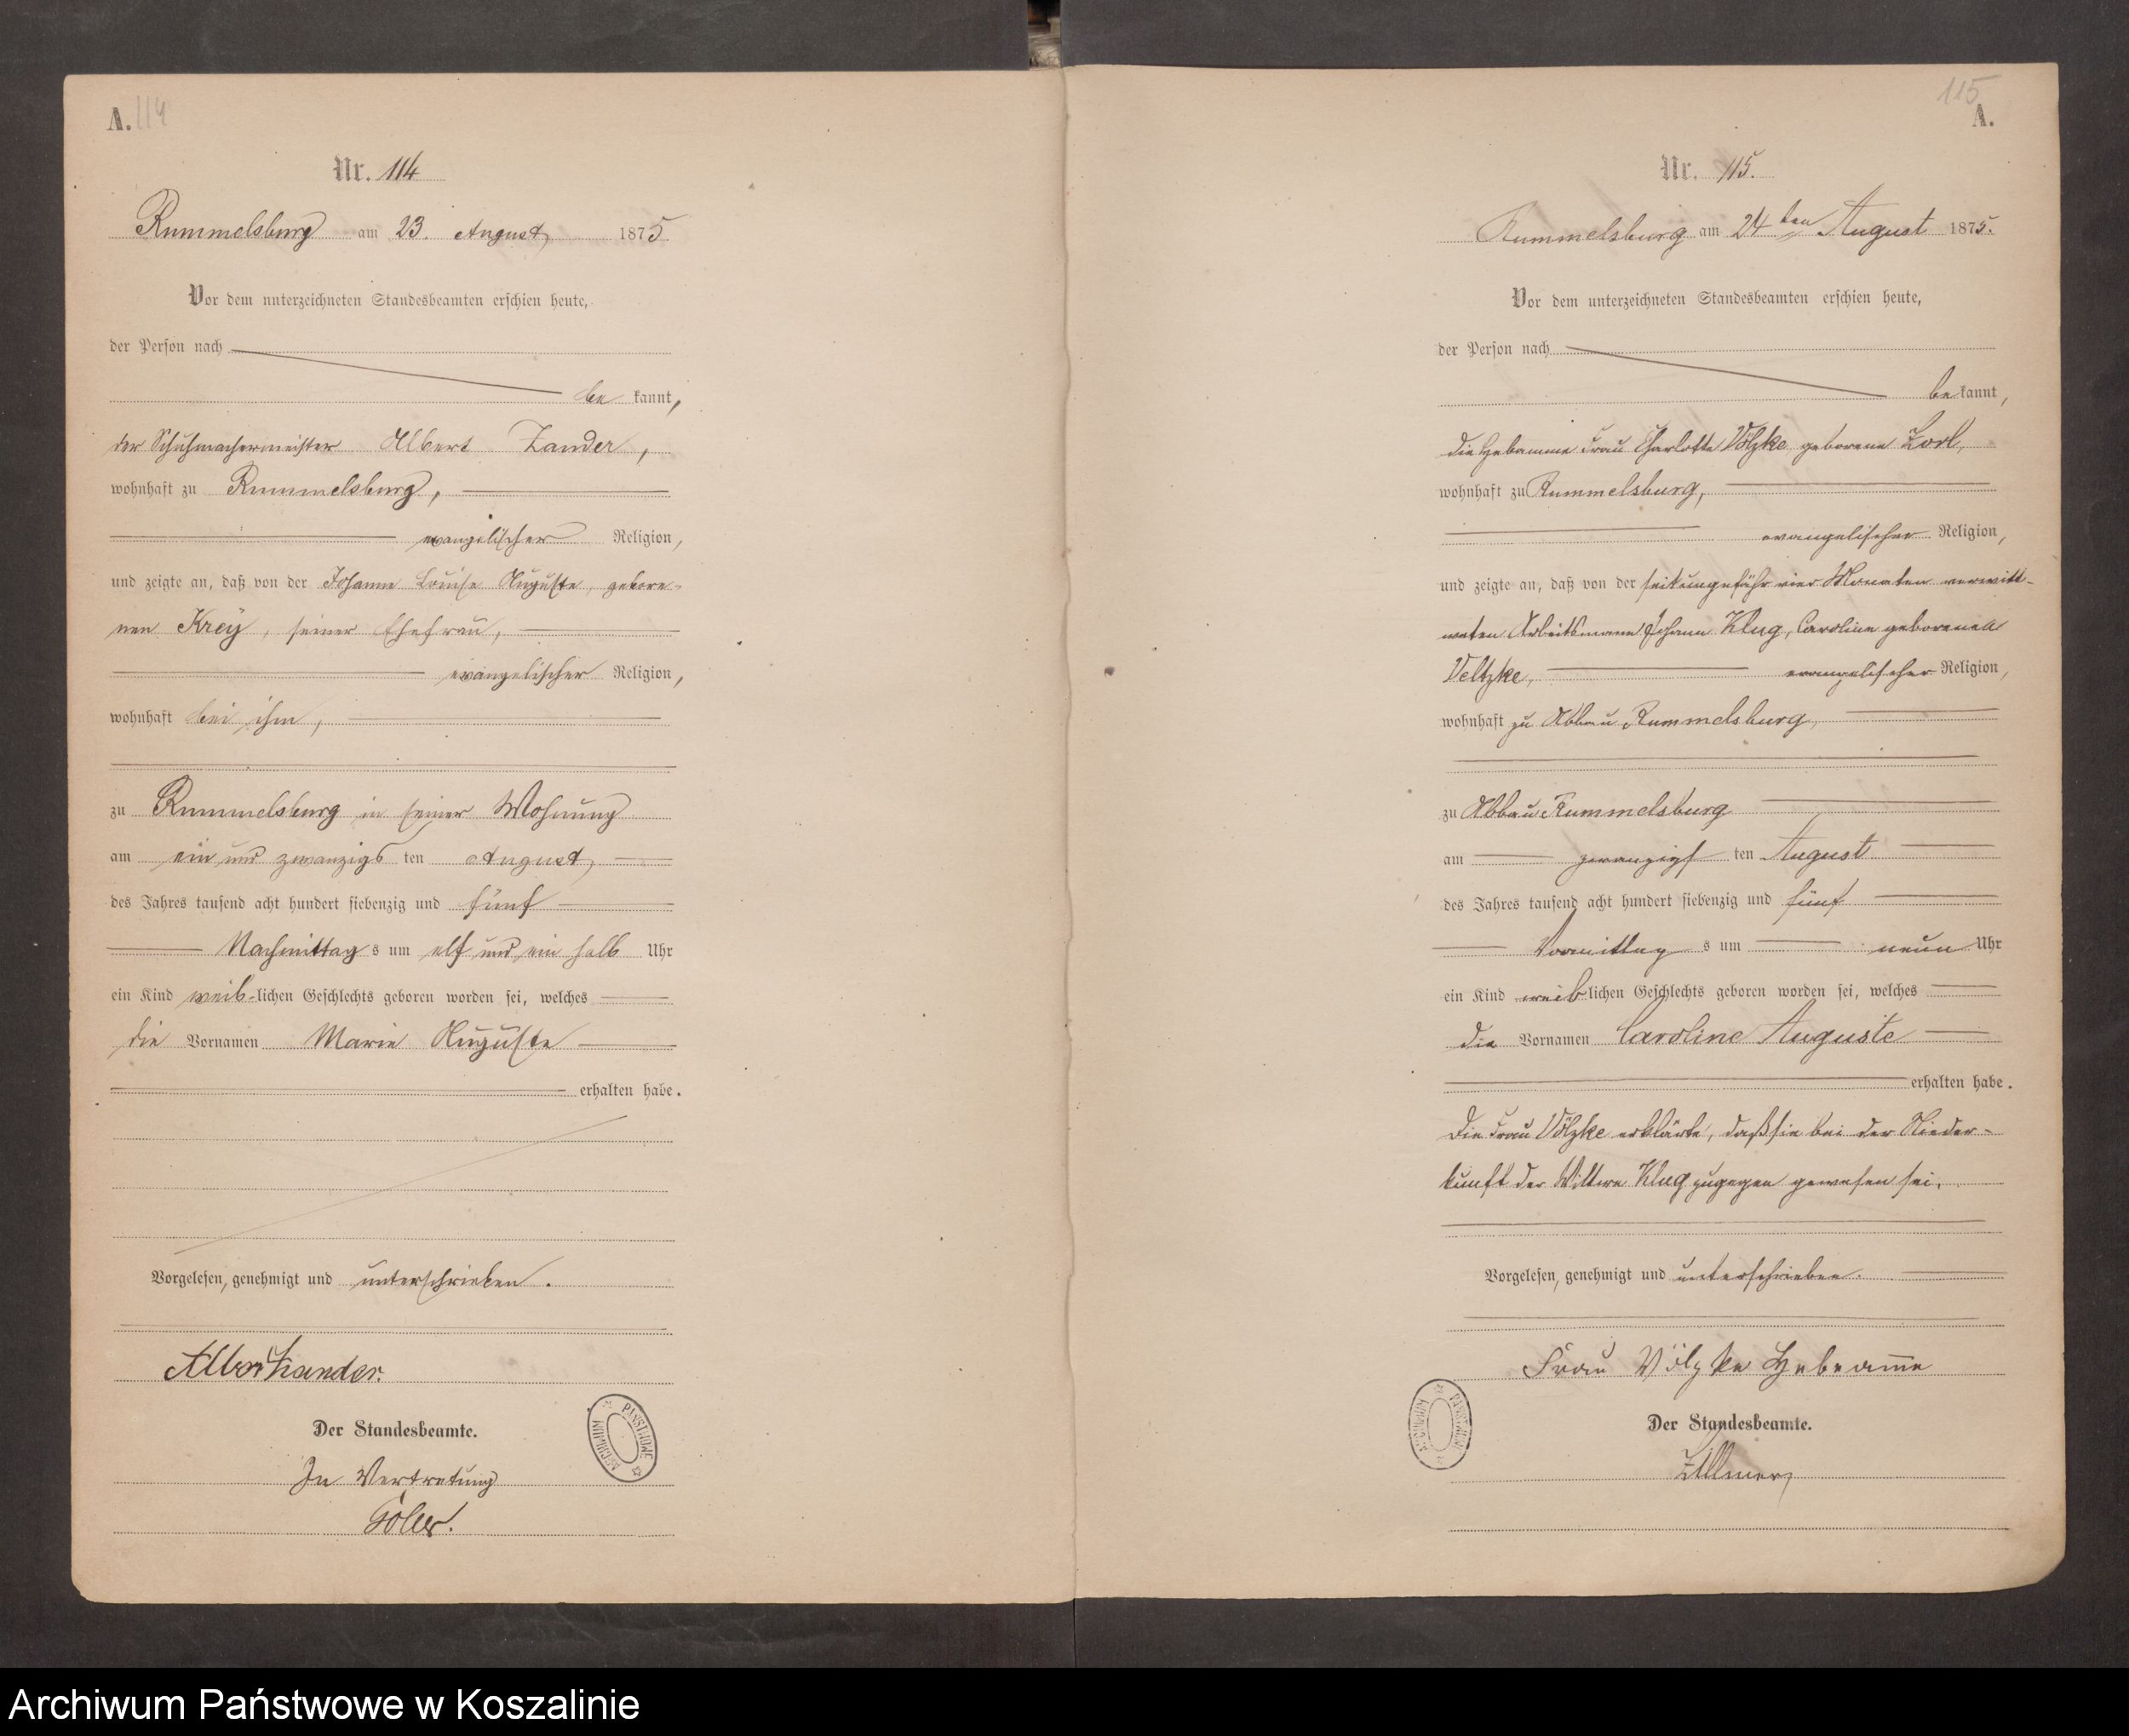 A. 114
Nr. 114
Rummelsburg am 23. August 1875.
Vor dem unterzeichneten Standesbeamten erschien heute,
der Person nach
be kannt,
der Schuhmachermeister Albert Zander,
wohnhaft zu Rummelsburg,
evangelischer Religion,
und zeigte an, daß von der Johanne Louise Auguste, gebore-
nen Krey, seiner Ehefrau,
evangelischer Religion,
wohnhaft bei ihm,
zu Rummelsburg in seiner Wohnung
am ein und zwanzigs ten August,
des Jahres tausend acht hundert siebenzig und fünf
Nachmittag s um elf und ein halb Uhr
ein Kind weib-lichen Geschlechts geboren worden sei, welches
die Vornamen Marie Auguste
erhalten habe.
Vorgelesen, genehmigt und unterschrieben.
Albert Zander.
Der Standesbeamte.
In Vertretung
ARCHIWUM PAŃSTWOWE
115
A.
Nr. 115.
Rummelsburg am 24ten August 1875.
Vor dem unterzeichneten Standesbeamten erschien heute,
der Person nach
be kannt,
die Hebamme Frau Charlotte Völzke geborene
wohnhaft zu Rummelsburg,
evangelischer Religion,
und zeigte an, daß von der seit ungefähr vier Monaten verwitt-
weten Arbeitsmann Johann Klug, Caroline geborenen
Veltzke, evangelischer Religion,
wohnhaft zu Abbau Rummelsburg,
zu Abbau Rummelsburg
am zwanzigs ten August
des Jahres tausend acht hundert siebenzig und fünf
Vormittag s um neun Uhr
ein Kind weib lichen Geschlechts geboren worden sei, welches
die Vornamen Caroline Auguste
erhalten habe.
Die Frau Völzke erklärte, daß sie bei der Nieder-
kunft der Wittwe Klug zugegen gewesen sei.
Vorgelesen, genehmigt und unterschrieben.
Frau Völzke Hebeamme
Der Standesbeamte.
ARCHIWUM PAŃSTWOWE
Archiwum Państwowe w Koszalinie